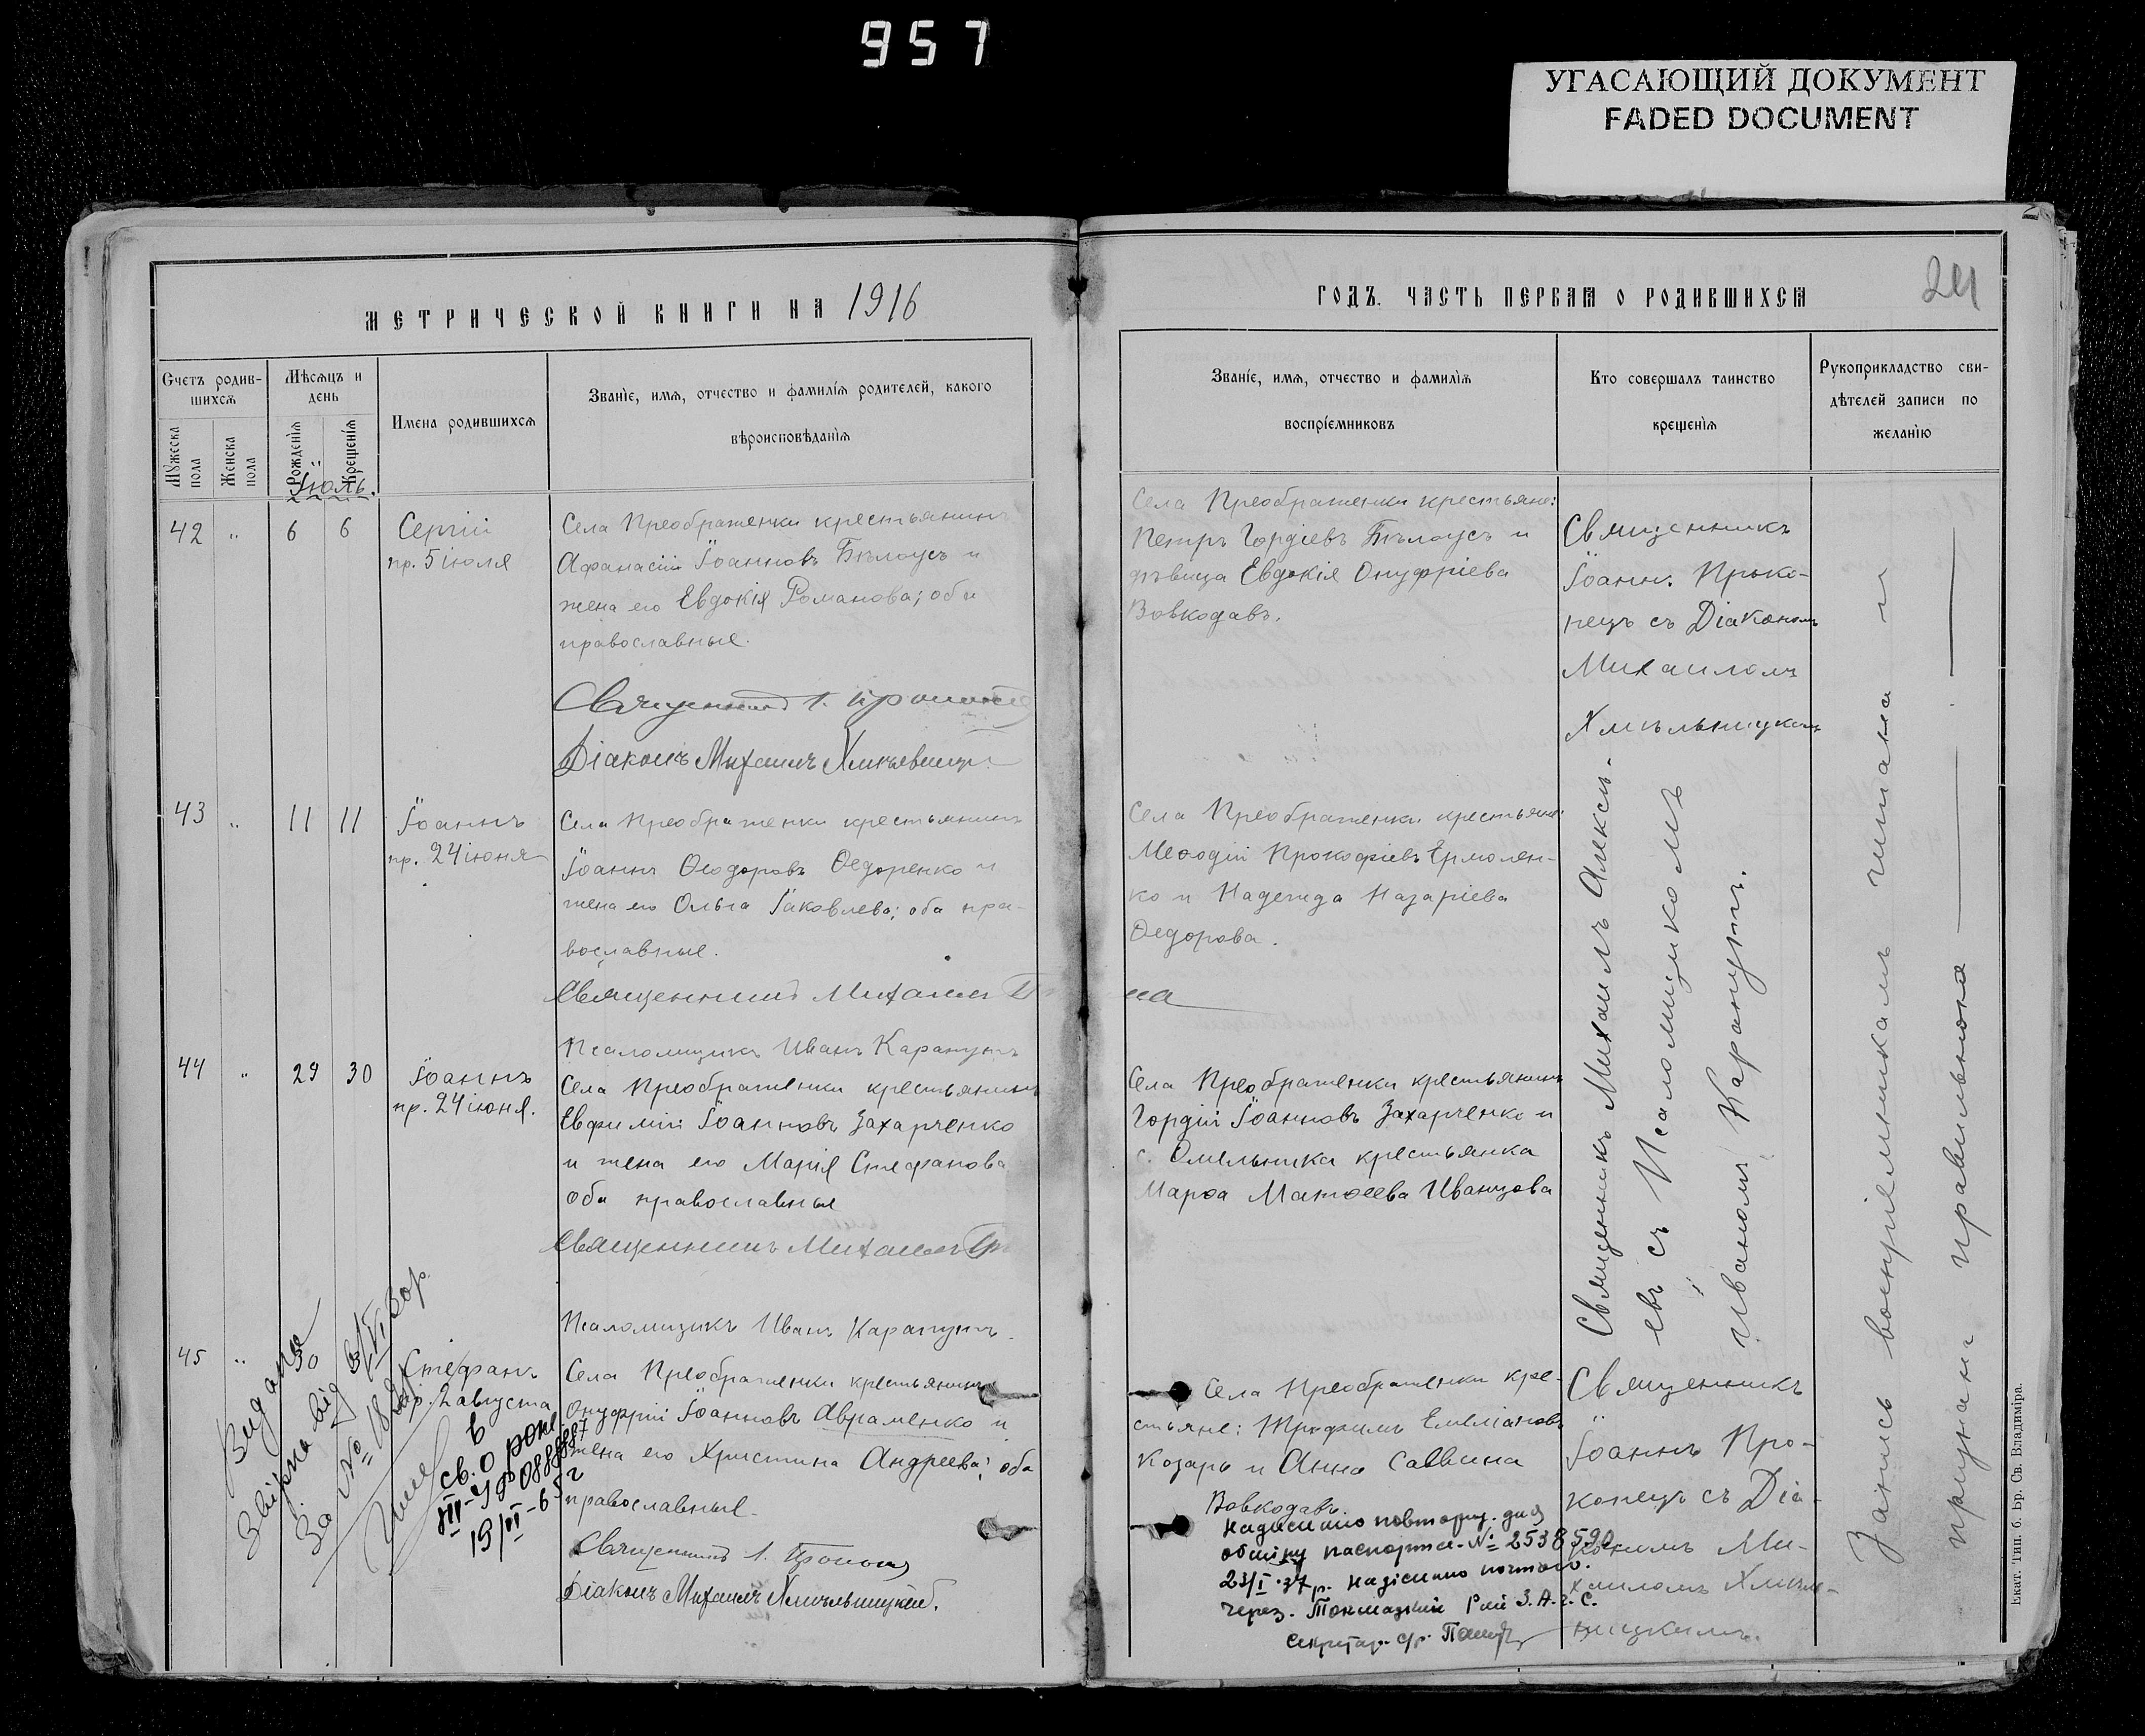 957
УГАСАЮЩИЙ ДОКУМЕНТ
FADED DOCUMENT
МЕТРИЧЕСКОЙ КНИГИ НА 1916
Счетъ родив-
шихся
Мужеска
пола
Женска
пола
Мѣсяцъ и
день
Рожденія
Крещенія
Имена родившихся
Званіе, имя, отчество и фамилія родителей, какого
вѣроисповѣданія
Іюль.
42 " 6 6
Сергій
пр. 5 іюля
Села Преображенки крестьянинъ
Афанасій Іоанновъ Бѣлоусъ и
жена его Евдокія Романова; оба
православные.
Священникъ І.
Діаконъ Михаилъ
43 " 11 11
Іоаннъ
пр. 24 іюня
Села Преображенки крестьянинъ
Іоаннъ Ѳеодоровъ Ѳедоренко и
жена его Ольга Іаковлева; оба пра-
вославные.
Священникъ Михаилъ
Псаломщикъ Иванъ Карапутъ
44 " 29 30
Іоаннъ
пр. 24 іюня.
Села Преображенки крестьянинъ
Евфимій Іоанновъ Захарченко
и жена его Марія Стефанова
оба православные
Священникъ Михаилъ
Псаломщикъ Иванъ Карапутъ.
45 " 30
Стефанъ
пр. 2 августа
Села Преображенки крестьянинъ
Онуфрій Іоанновъ Авраменко и
жена его Христина Андреева; оба
православные.
Священникъ І.
Діаконъ Михаилъ Хмѣльницкій.
Видана
від
За №
св. о рож.
19/VI-65 г
ГОДЪ. ЧАСТЬ ПЕРВАЯ О РОДИВШИХСЯ
24
Званіе, имя, отчество и фамилія
воспріемниковъ
Кто совершалъ таинство
крещенія
Рукоприкладство сви-
дѣтелей записи по
желанію
Села Преображенки крестьяне:
Петръ Гордіевъ Бѣлоусъ и
дѣвица Евдокія Онуфріева
Вовкодавъ.
Священникъ
Іоаннъ Проко-
пецъ съ Діакономъ
Михаиломъ
Хмѣльницкимъ
Села Преображенки крестьяне
Меѳодій Прокофіевъ Ермолен-
ко и Надежда Назаріева
Ѳедорова.
Села Преображенки крестьянинъ
Гордій Іоанновъ Захарченко и
с. Омельника крестьянка
Марѳа Матѳеева Иванцова
Священникъ Михаилъ Алексѣ-
евъ съ Псаломщикомъ
Иваномъ Карапутъ.
Села Преображенки кре-
стьяне: Трофимъ Емеліановъ
Козарь и Анна Саввина
Вовкодавъ.
Священникъ
Іоаннъ Про-
копецъ съ Діа-
кономъ Ми-
хаиломъ Хмѣль-
ницкимъ.
Надіслано повторн. для
обміну паспорта-№ 2538590
23/I-37 р. Надіслано поштою.
через. Токмацький Рай З.А.Г.С.
Секретар с/р.
Запись воспріемникамъ читана и
признана правильною
Екат. Тип. б. Бр. Св. Владиміра.